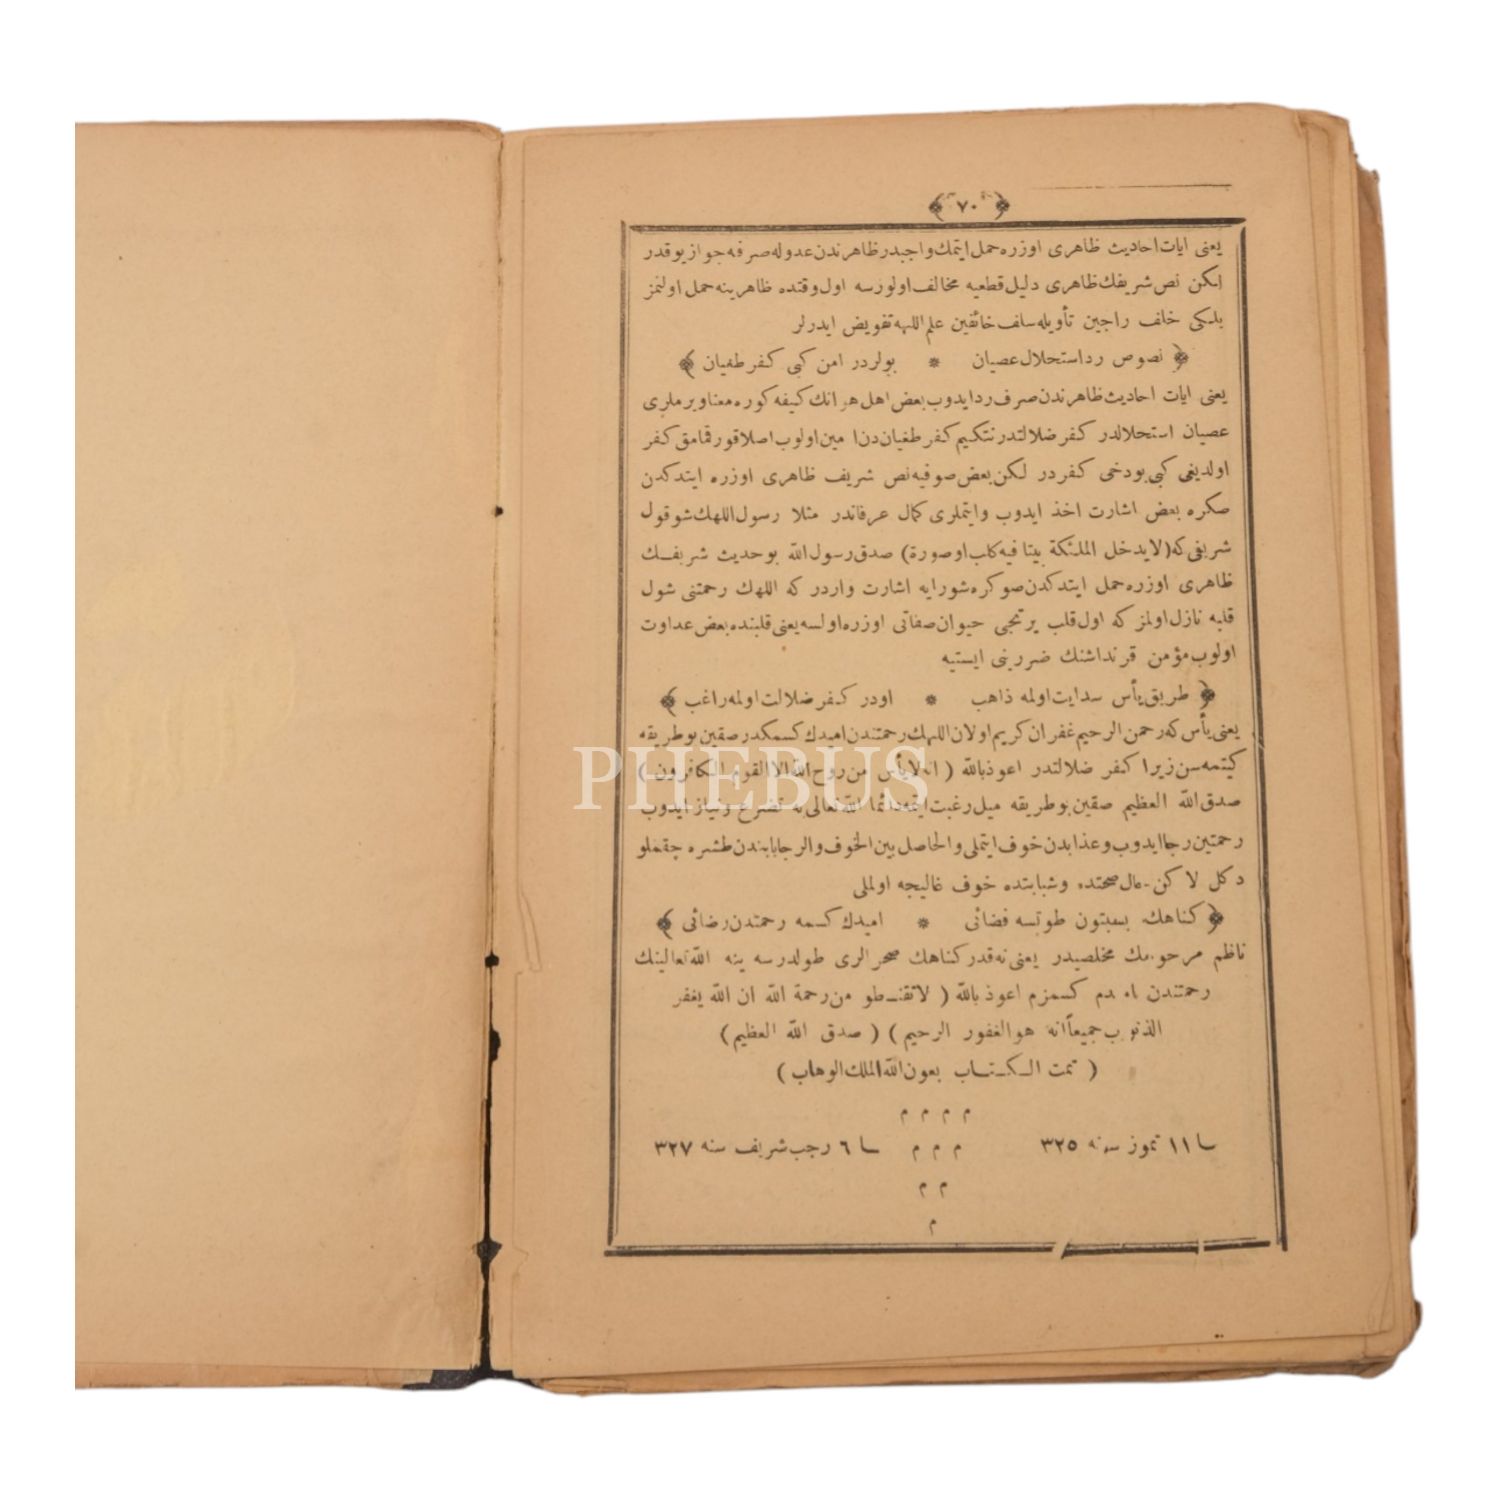 ﴿ ٧٠ ﴾
يعنى ايات احاديث ظاهرى اوزره حمل ايتمك واجبدر ظاهرندن عدوله صرفه جواز يوقدر
لكن نص شريفك ظاهرى دليل قطعيه مخالف اولورسه اول وقتده ظاهرينه حمل اولنمز
بلكى خلف راجين تأويله سلف خائفين علم اللهه تفويض ايدرلر
﴿ نصوص رد استحلال عصيان * بولردر امن كبى كفر طغيان ﴾
يعنى ايات احاديث ظاهرندن صرف رد ايدوب بعض اهل هوانك كيفه كوره معنا ويرملرى
عصيان استحلالدر كفر ضلالتدر نتكيم كفر طغياندن امين اولوب اصلا قورقمامق كفر
اولديغى كبى بودخى كفردر لكن بعض صوفيه نص شريف ظاهرى اوزره ايتدكدن
صكره بعض اشارت اخذ ايدوب وايتملرى كمال عرفاندر مثلا رسول اللهك شو قول
شريفى كه (لا يدخل الملئكة بيتا فيه كلب او صورة) صدق رسول الله بو حديث شريفك
ظاهرى اوزره حمل ايتدكدن صوكره شورايه اشارت واردر كه اللهك رحمتنى شول
قلبه نازل اولمز كه اول قلب يرتيجى حيوان صفاتى اوزره اولسه يعنى قلبنده بعض عداوت
اولوب مؤمن قرنداشنك ضررينى ايستيه
﴿ طريق يأس سدايت اولمه ذاهب * اودر كفر ضلالت اولمه راغب ﴾
يعنى يأس كه رحمن الرحيم غفران كريم اولان اللهك رحمتندن اميدك كسمكدر صقين بو طريقه
كيتمه سن زيرا كفر ضلالتدر اعوذ بالله ( انه لا يأس من روح الله الا القوم الكافرون )
صدق الله العظيم صقين بو طريقه ميل رغبت ايتمه دائما الله تعالى يه تضرع ونياز ايدوب
رحمتين رجا ايدوب وعذابدن خوف ايتملى والحاصل بين الخوف والرجا بابندن طشره چقملو
دكل لاكن حال صحتده وشبابتده خوف غاليجه اولملى
﴿ كناهك بسبتون طوتسه فضائى * اميدك كسمه رحمتدن رضائى ﴾
ناظم مرحومك مخلصيدر يعنى نه قدر كناهك صحرالرى طولدرسه ينه الله تعالينك
رحمتندن اميدم كسمزم اعوذ بالله ( لا تقنطو من رحمة الله ان الله يغفر
الذنوب جميعاً انه هو الغفور الرحيم ) ( صدق الله العظيم )
( تمت الكتاب بعون الله الملك الوهاب )
م م م م
١١ تموز سنه ٣٢٥ م م م ٦ رجب شريف سنه ٣٢٧
م م
م
PHEBUS